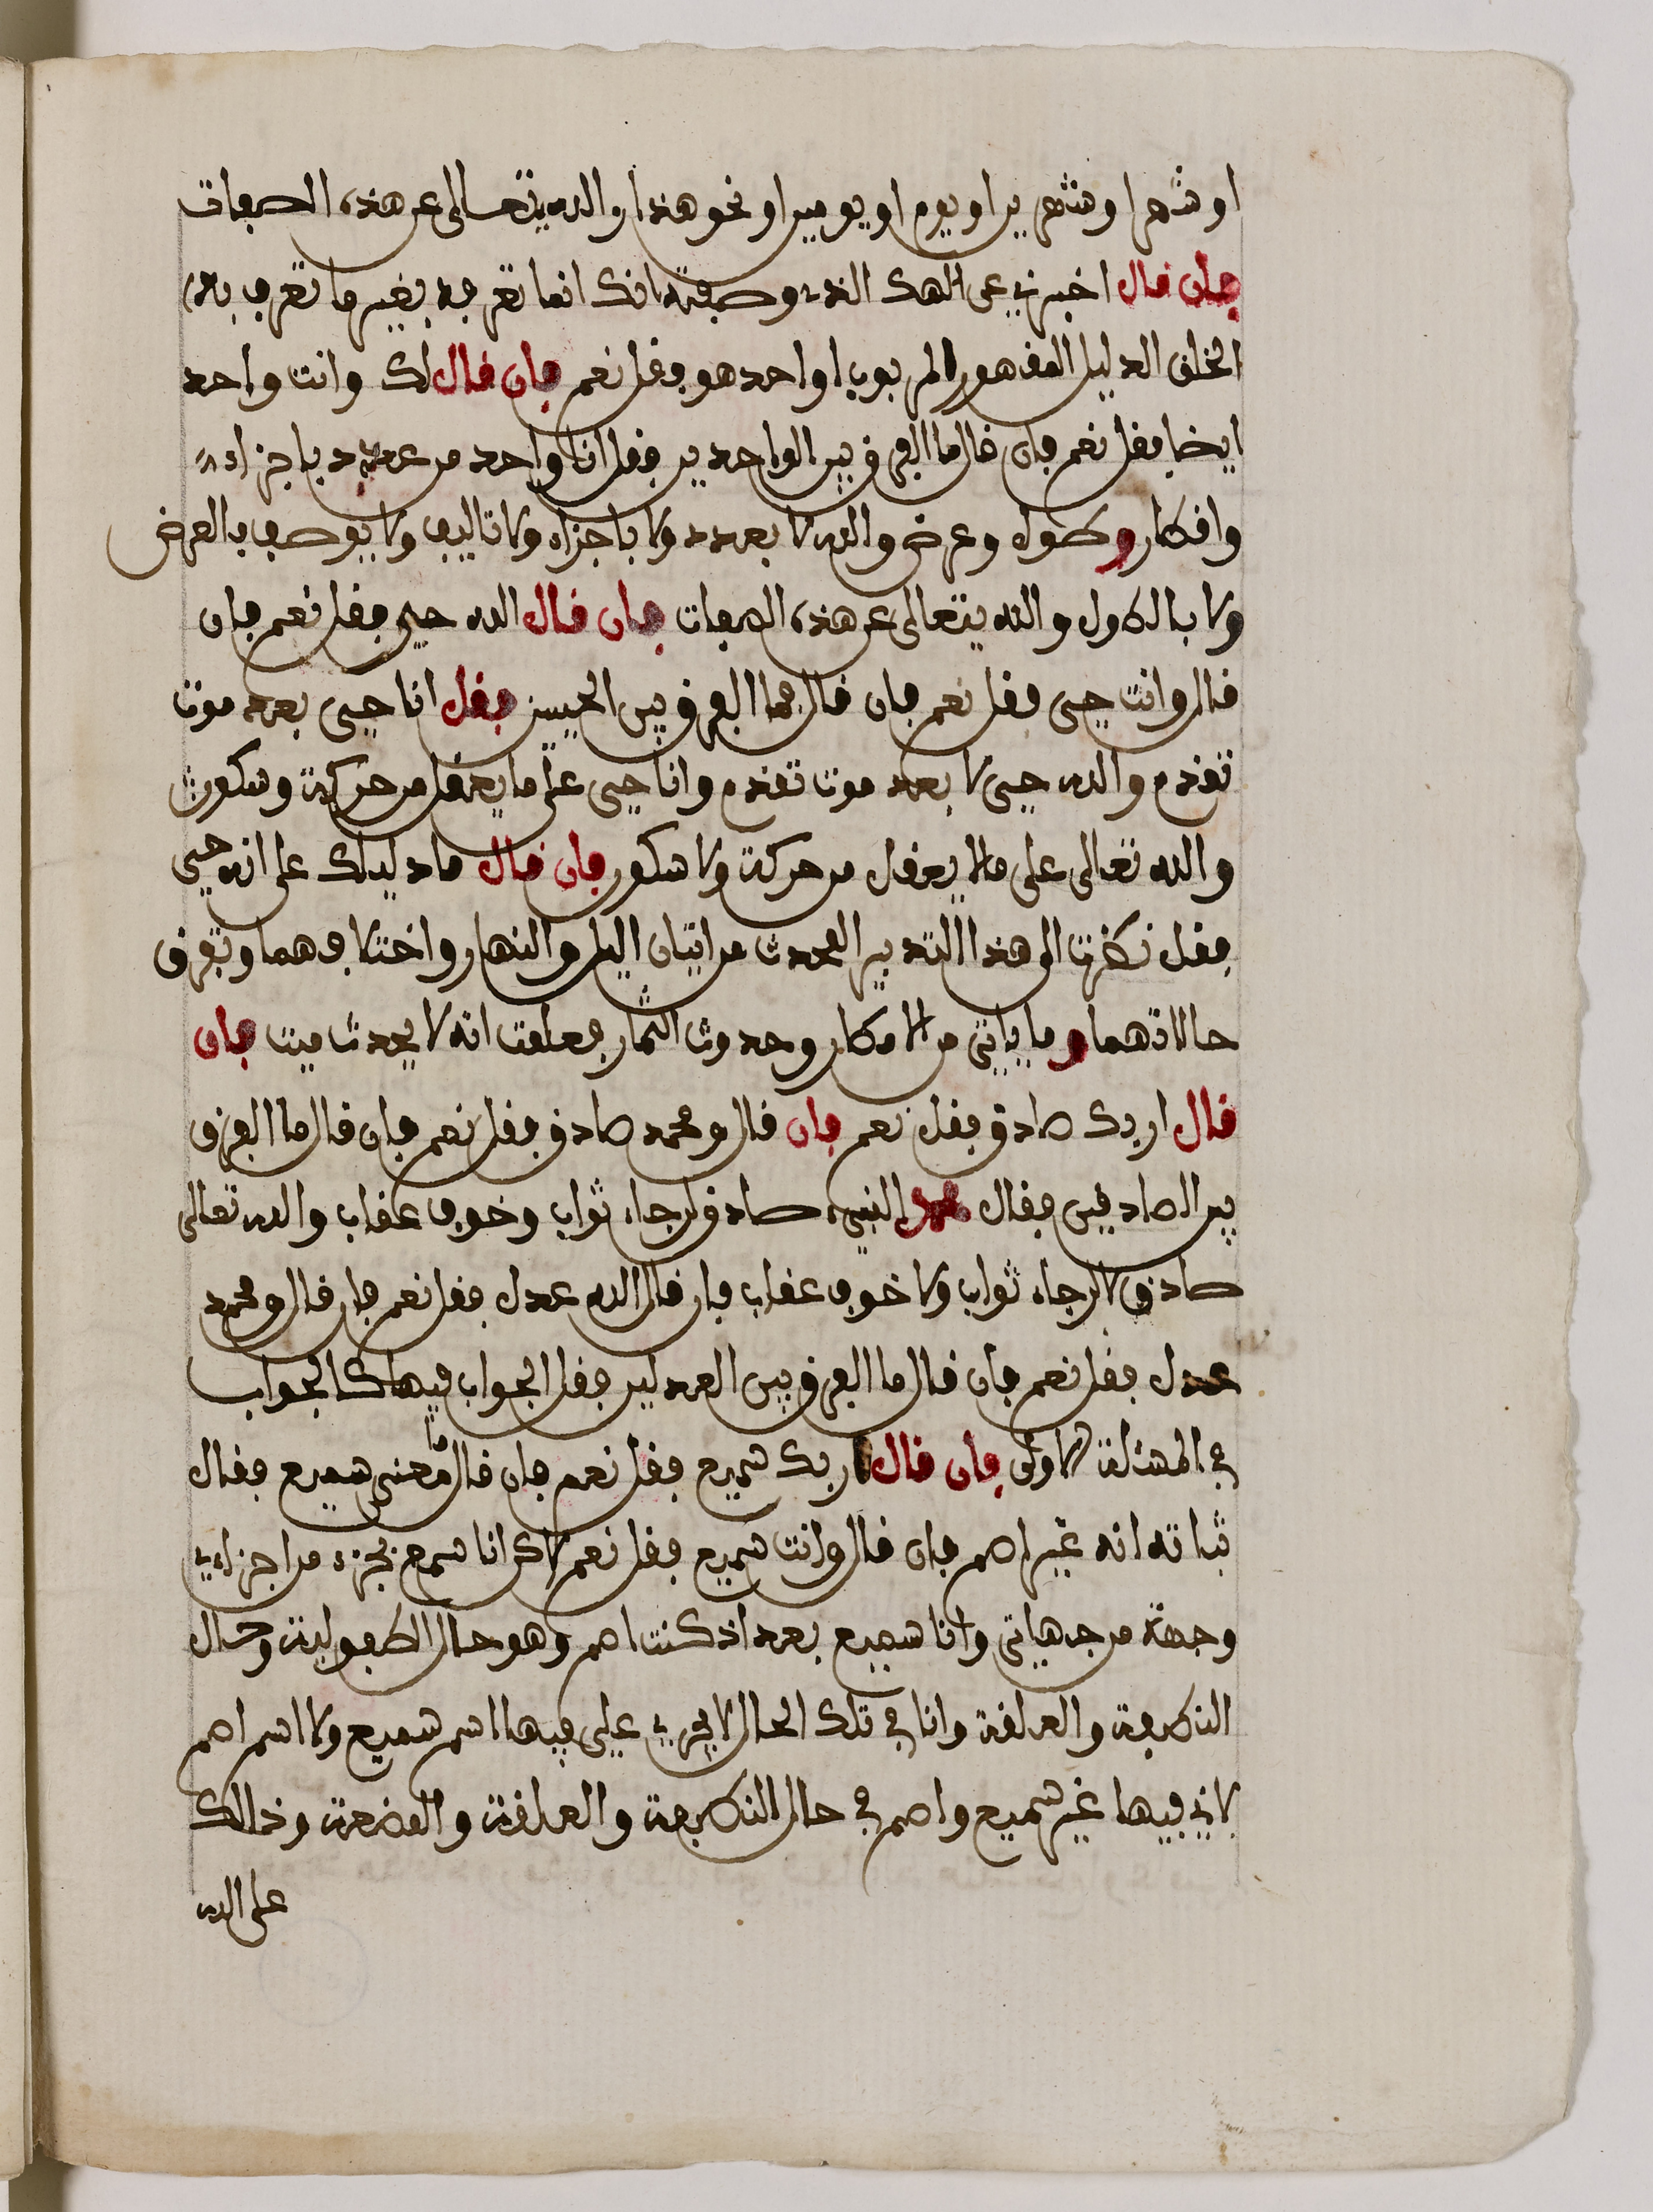 او شهرا وشهرين او يوم او يومين او نحو هذا والله يتعالى عن هذه الصفات
فان قال اخبرني عن الهك الذي وصفته انك انما تعرفه بغير ما تعرف به
الخلق الدليل المقهور المربوب اواحد هو فقل نعم فان قال لك وانت واحد
ايضا فقل نعم فان قال ما الفرق بين الواحدين فقل انا واحد من عدد باجزاء
وافكار وطول وعرض والله لا بعدد ولا باجزاء ولا تاليف ولا يوصف بالعرض
ولا بالطول والله يتعالى عن هذه الصفات فان قال الله حيي فقل نعم فان
قال وانت حيى فقل نعم فان قال فما الفرق بين الحيين فقل انا حيى بعد موت
تقدم والله حيى لا بعد موت تقدم وانا حيى على ما يعقل من حركة وسكون
والله تعالى على ما لا يعقل من حركة ولا سكون فان قال ما دليلك على انه حيى
فقل نظرت الى هذا التدبير المحدث من اتيان اليل والنهار واختلافهما وتفرق
حالاتهما وما ياتي من الامطار وحدوث الثمار فعلمت انه لا يحدث ميت فان
قال اربك صادق فقل نعم فان قال ومحمد صادق فقل نعم فان قال ما الفرق
بين الصادقين فقال محمد النبيء صادق لرجاء ثواب وخوف عقاب والله تعالى
صادق لا لرجاء ثواب ولا خوف عقاب فان قال الله عدل فقل نعم فان قال ومحمد
عدل فقل نعم فان قال ما الفرق بين العدلين فقل الجواب فيها كالجواب
في المسئلة الاولى فان قال اربك سميع فقل نعم فان قال ما معنى سميع فقال
ثباته انه غير اصم فان قال وانت سميع فقل نعم لاكن انا سمع بجزء من اجزاءي
وجهة من جهاتي وانا سميع بعد اذ كنت اصم وهو حال الطفولية وحال
النطفة والعلقة وانا في تلك الحال لا يجري علي فيها اسم سميع ولا اسم اصم
لاني فيها غير سميع واصم في حال النطفة والعلقة والمضغة وذالك
على الله